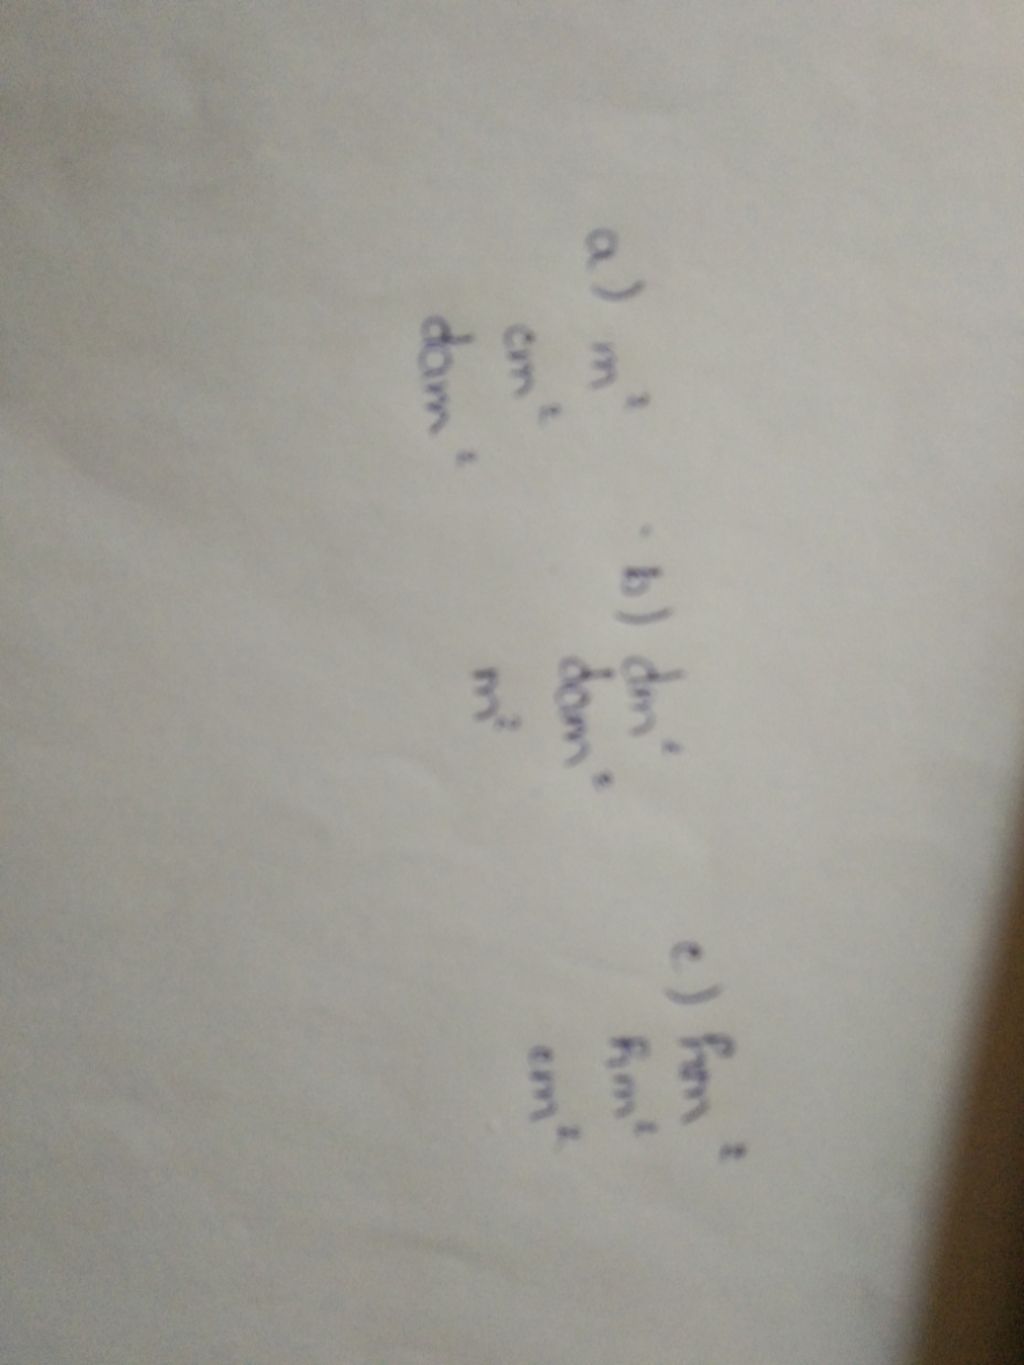 a) m²
cm²
dam²
b) dm²
dam²
m²
c) hm²
km²
cm²